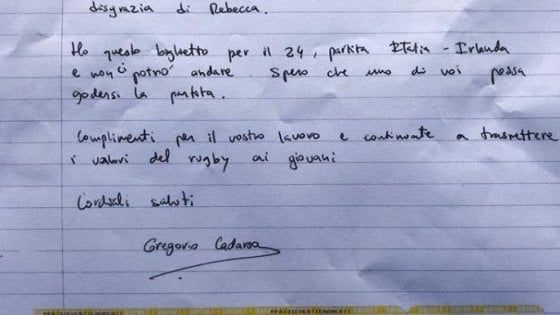 disgrazia di Rebecca.
Ho questo biglietto per il 24, partita Italia - Irlanda
e non ci potrò andare. Spero che uno di voi possa
godersi la partita.
Complimenti per il vostro lavoro e continuate a trasmettere
i valori del rugby ai giovani
Cordiali saluti
Gregorio